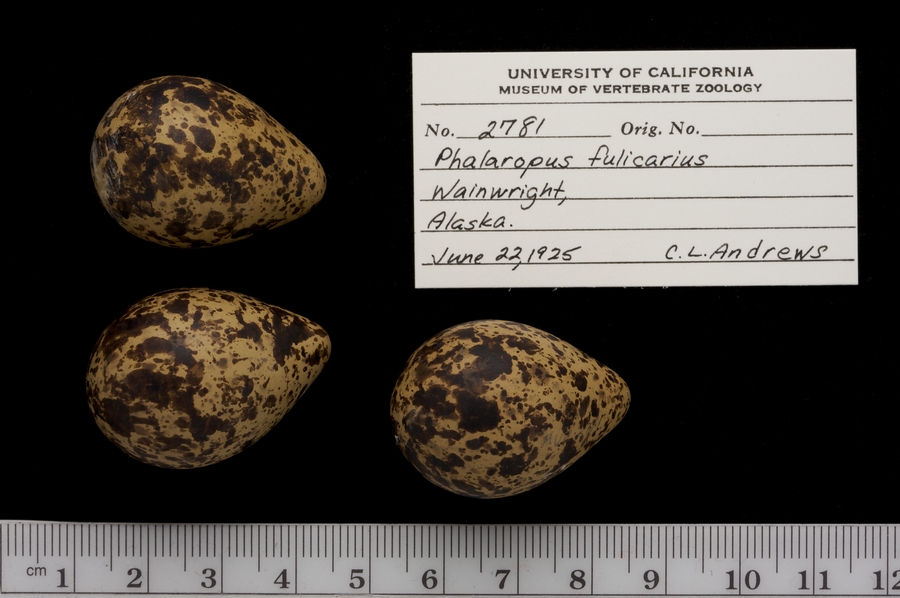 UNIVERSITY OF CALIFORNIA
MUSEUM OF VERTEBRATE ZOOLOGY
No. 2781 Orig. No.
Phalaropus fulicarius
Wainwright,
Alaska.
June 22, 1925 C.L. Andrews
cm 1 2 3 4 5 6 7 8 9 10 11 12